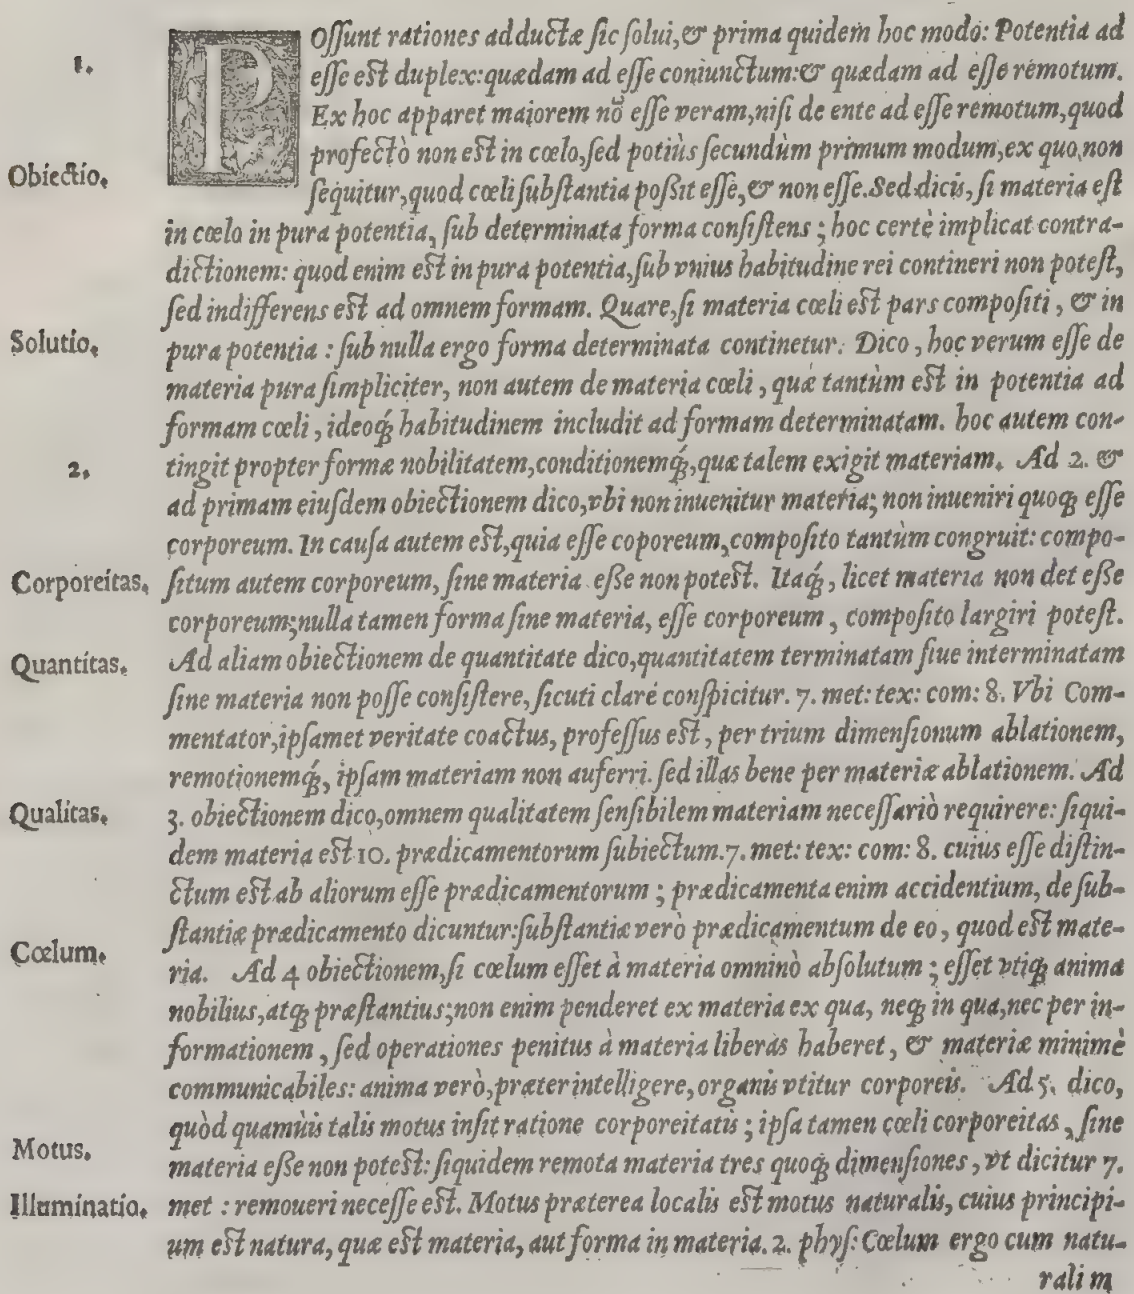 1.
POſſunt rationes adductæ ſic ſolui,& prima quidem hoc modo: Potentia ad
eſſe eſt duplex:quædam ad eſſe coniunctum:& quædam ad eſſe remotum.
Ex hoc apparet maiorem nõ eſſe veram,niſi de ente ad eſſe remotum,quod
profectò non eſt in cœlo,ſed potiùs ſecundùm primum modum,ex quo,non
Obiectio.
ſequitur,quod cœli ſubſtantia poßit eſſe,& non eſſe.Sed dicis, ſi materia eſt
in cœlo in pura potentia, ſub determinata forma conſiſtens ; hoc certè implicat contra-
dictionem: quod enim eſt in pura potentia,ſub vnius habitudine rei contineri non poteſt,
ſed indifferens eſt ad omnem formam. Quare,ſi materia cœli eſt pars compoſiti, & in
Solutio.
pura potentia : ſub nulla ergo forma determinata continetur. Dico, hoc verum eſſe de
materia pura ſimpliciter, non autem de materia cœli, quæ tantùm eſt in potentia ad
formam cœli, ideoq́; habitudinem includit ad formam determinatam. hoc autem con-
2.
tingit propter formæ nobilitatem,conditionemq́;,quæ talem exigit materiam. Ad 2. &
ad primam eiuſdem obiectionem dico,vbi non inuenitur materia; non inueniri quoq; eſſe
corporeum. In cauſa autem eſt,quia eſſe coporeum,compoſito tantùm congruit: compo-
Corporeitas.
ſitum autem corporeum, ſine materia eſſe non poteſt. Itaq́;, licet materia non det eſſe
corporeum;nulla tamen forma ſine materia, eſſe corporeum, compoſito largiri poteſt.
Quantitas.
Ad aliam obiectionem de quantitate dico,quantitatem terminatam ſiue interminatam
ſine materia non poſſe conſiſtere, ſicuti claré conſpicitur. 7. met: tex: com: 8. Vbi Com-
mentator,ipſamet veritate coactus, profeſſus eſt, per trium dimenſionum ablationem,
remotionemq́;, ipſam materiam non auferri. ſed illas bene per materiæ ablationem. Ad
Qualitas.
3. obiectionem dico,omnem qualitatem ſenſibilem materiam neceſſariò requirere: ſiqui-
dem materia eſt 10. prædicamentorum ſubiectum.7. met: tex: com: 8. cuius eſſe diſtin-
ctum eſt ab aliorum eſſe prædicamentorum ; prædicamenta enim accidentium, de ſub-
ſtantiæ prædicamento dicuntur:ſubſtantiæ verò prædicamentum de eo, quod eſt mate-
Cœlum.
ria. Ad 4 obiectionem,ſi cœlum eſſet à materia omninò abſolutum ; eſſet vtiq; anima
nobilius,atq; præſtantius;non enim penderet ex materia ex qua, neq; in qua,nec per in-
formationem, ſed operationes penitus à materia liberas haberet, & materiæ minimè
communicabiles: anima verò,præter intelligere,organis vtitur corporeis. Ad 5. dico,
quòd quamùis talis motus inſit ratione corporeitatis ; ipſa tamen cœli corporeitas, ſine
Motus.
materia eſſe non poteſt: ſiquidem remota materia tres quoq; dimenſiones, vt dicitur 7.
Illuminatio.
met : remoueri neceſſe eſt. Motus præterea localis eſt motus naturalis, cuius principi-
um eſt natura, quæ eſt materia, aut forma in materia. 2. phyſ: Cœlum ergo cum natu-
rali m